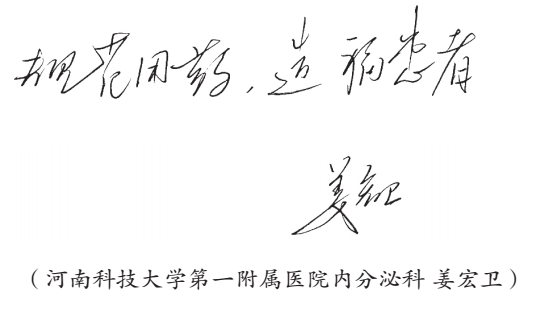 规范用药，造福患者
姜宏卫
（河南科技大学第一附属医院内分泌科 姜宏卫）